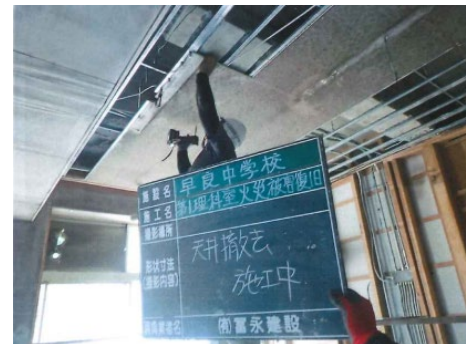 施設名 早良中学校
施工名 第1理科室火災被害復旧
撮影場所
形状寸法
(撮影内容)
天井撤去
施工中
請負業者名 (有)冨永建設